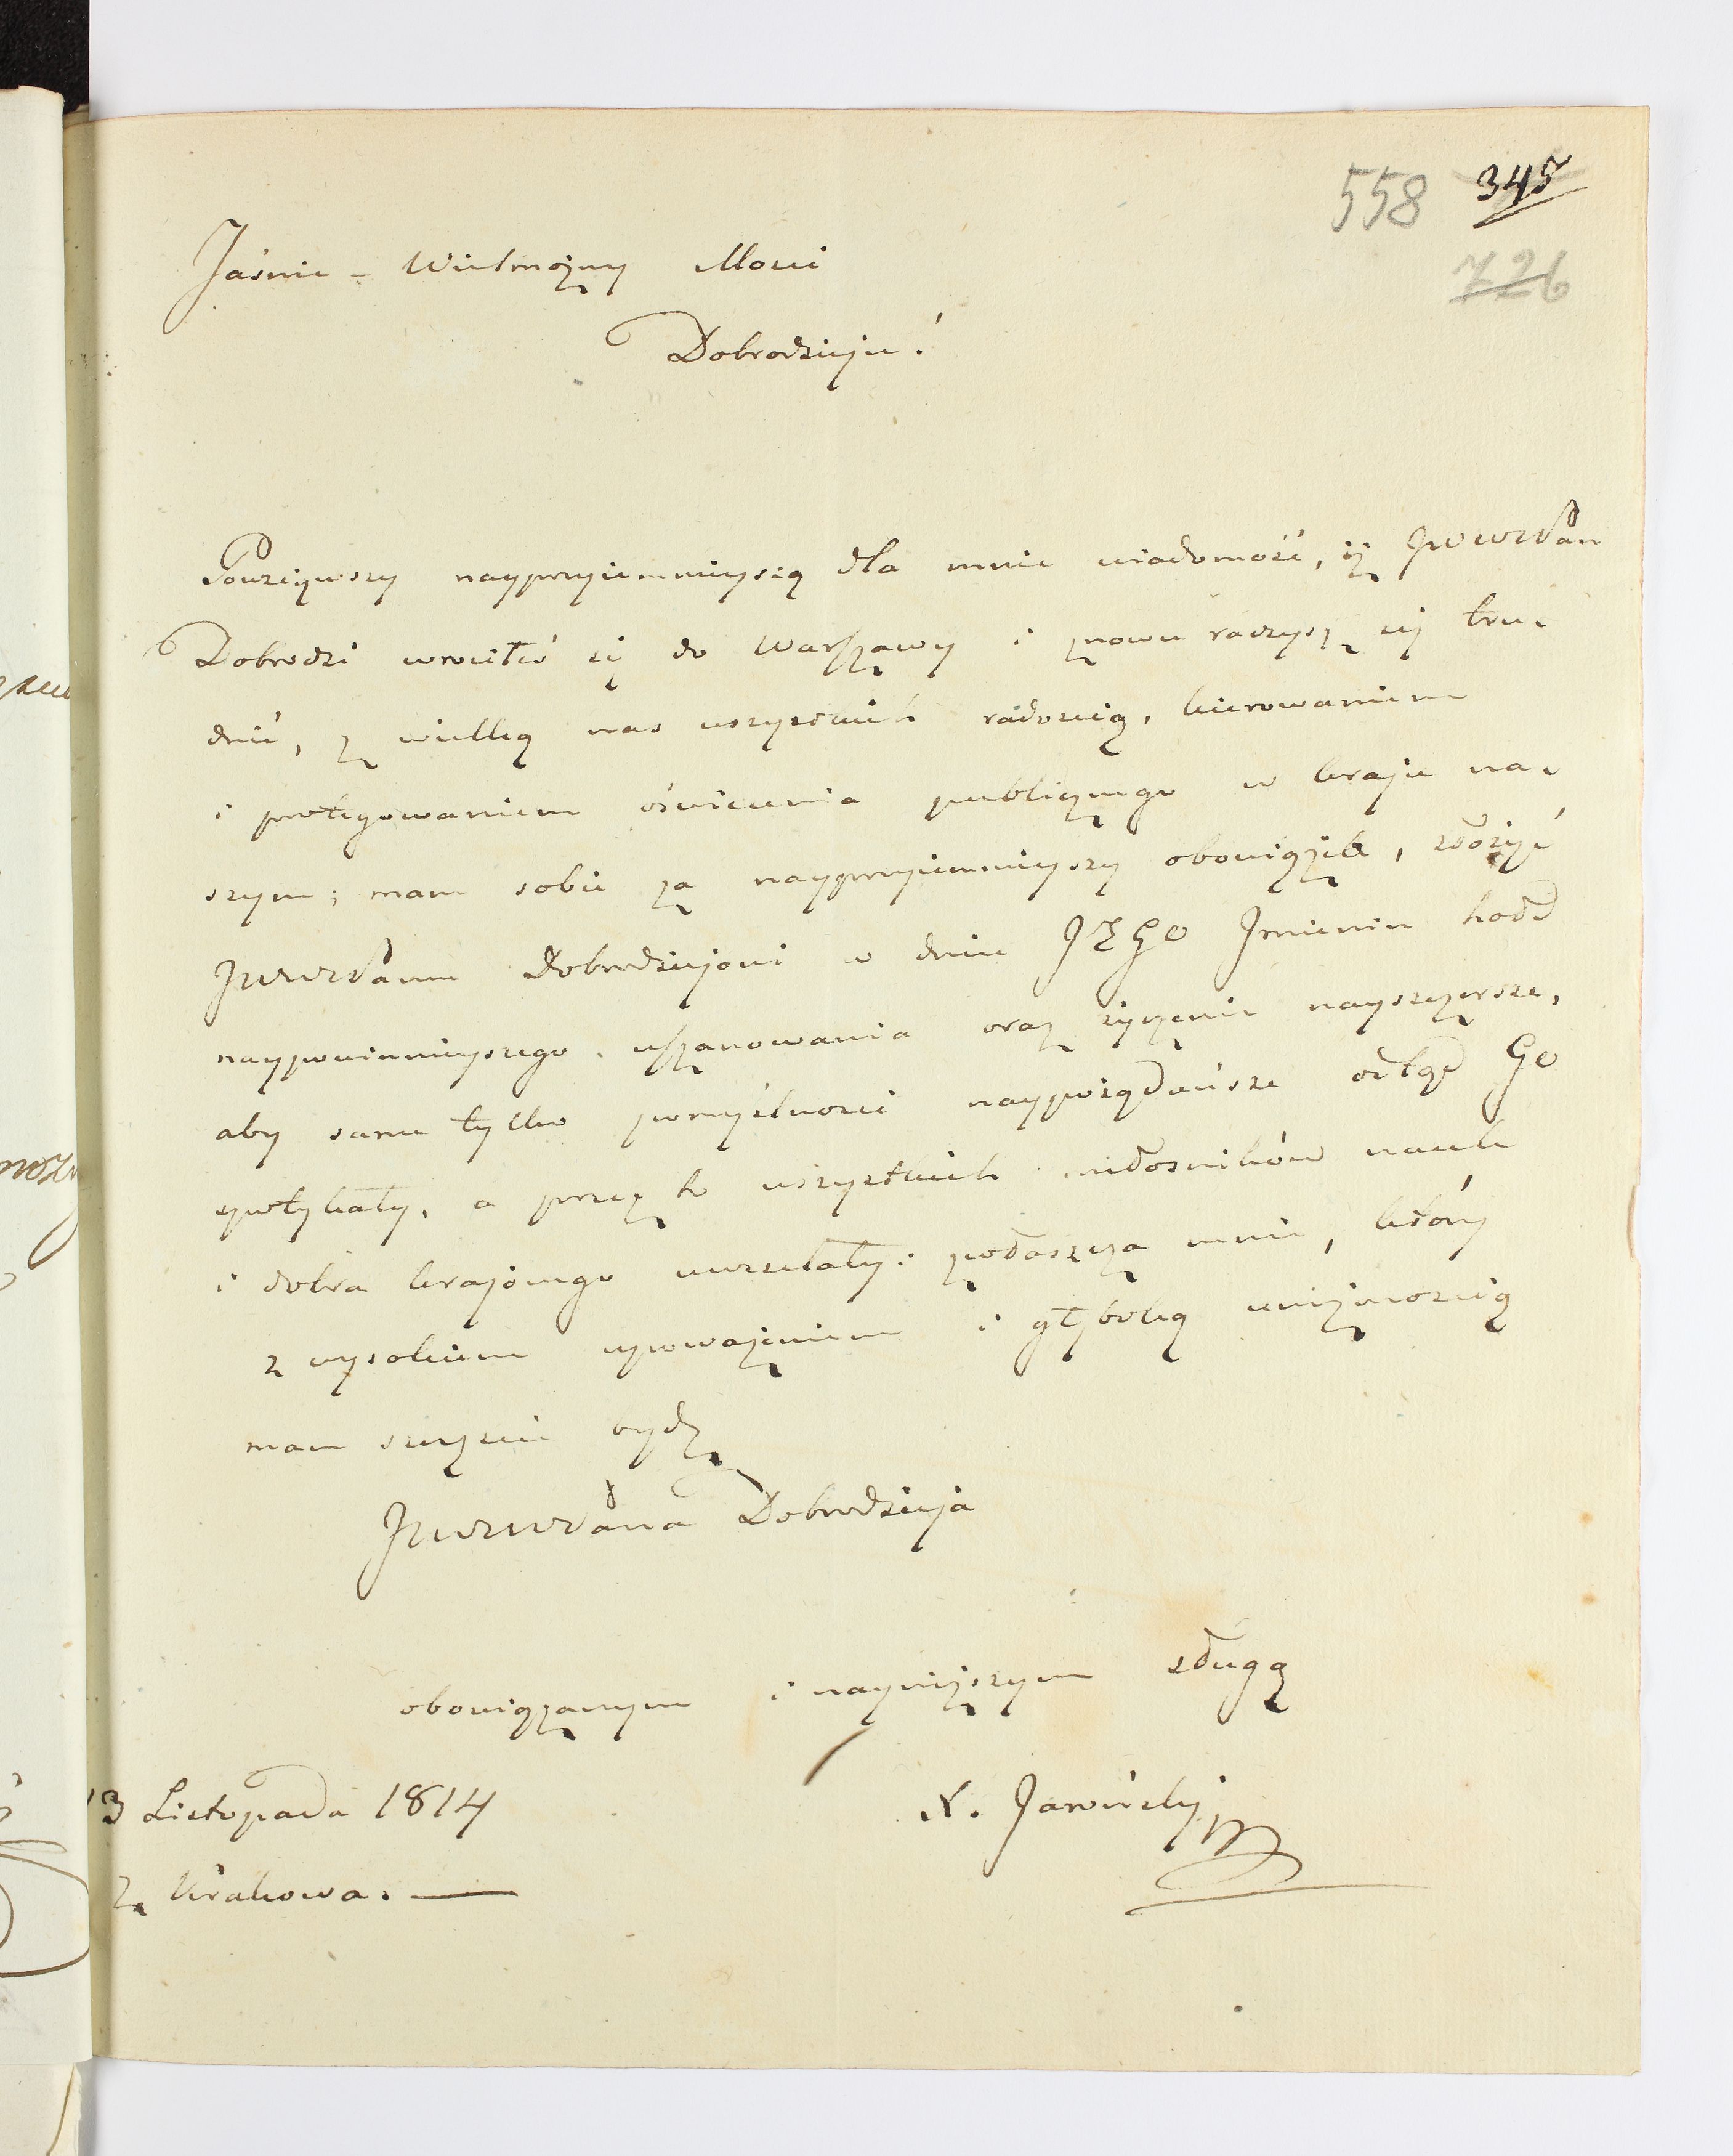 558 345
726
Jaśnie - Wielmożny Mości
Dobrodzieju!
Powziąwszy nayprzyiemnieyszą dla mnie wiadomość, iż JWWPan
Dobrodzi wrociłeś się do Warszawy i znowu raczysz się tru-
dnić, z wielką nas wszystkich radością, kierowaniem
i protegowaniem oświecenia publicznego w kraju na-
szym; mam sobie za nayprzyiemnieyszy obowiązek, złożyć
JWWPanu Dobrodziejowi w dniu JEGO Jmienin hołd
naypowinnieyszego uszanowania oraz życzenie nayszczersze,
aby same tylko pomyślności naypożądańsze odtąd Go
spotykały, a przez to wszystkich miłośników nauk
i dobra krajowego uwselały: zwłaszcza mnie, który
z wysokiem upoważeniem i głęboką uniżonością
mam szczęście bydź
JWWPana Dobrodzieja
obowiązanym i nayniższym sługą
13 Listopada 1814
X. Jarońsky
z Krakowa. —